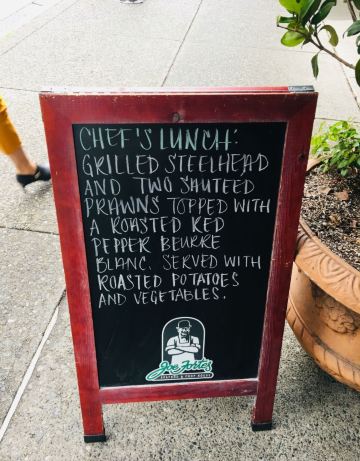 CHEF'S LUNCH:
GRILLED STEELHEAD
AND TWO SAUTEED
PRAWNS TOPPED WITH
A ROASTED RED
PEPPER BEURRE
BLANC. SERVED WITH
ROASTED POTATOES
AND VEGETABLES.
Joe Fortes
SEAFOOD & CHOP HOUSE